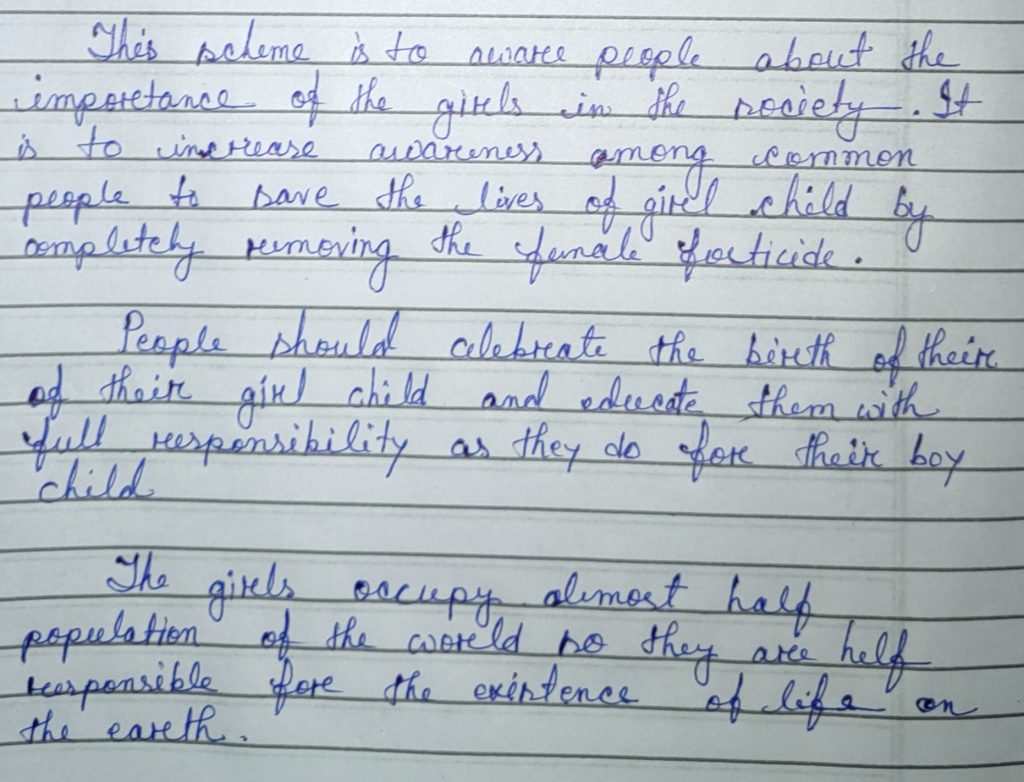 This scheme is to aware people about the
importance of the girls in the society. It
is to increase awareness among common
people to save the lives of girl child by
completely removing the female foeticide.
People should celebrate the birth of their
of their girl child and educate them with
full responsibility as they do for their boy
child
The girls occupy almost half
population of the world so they are half
responsible for the existence of life on
the earth.